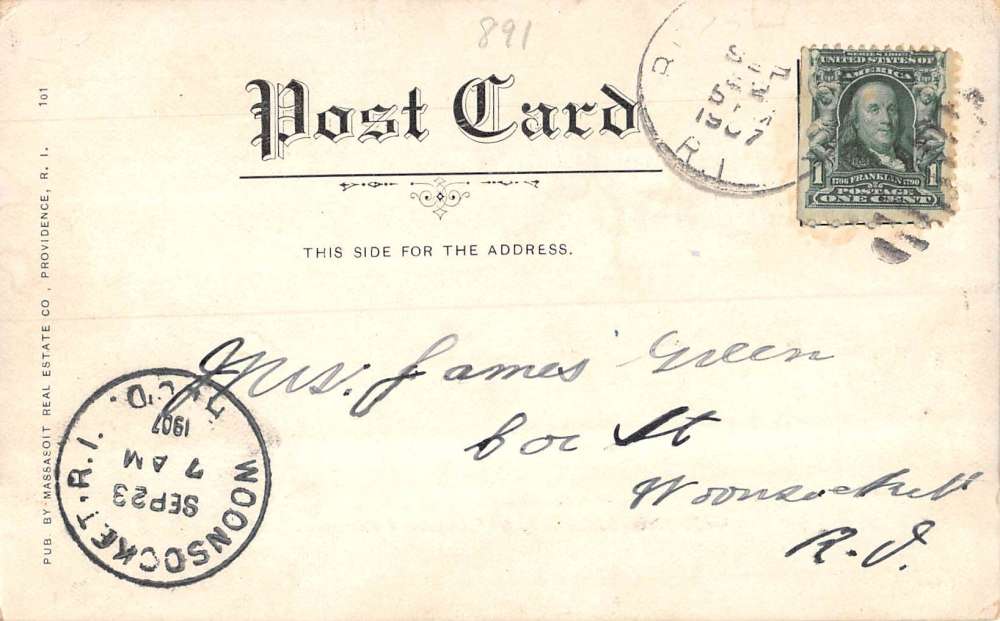 891
Post Card
THIS SIDE FOR THE ADDRESS.
PUB. BY MASSASOIT REAL ESTATE CO., PROVIDENCE, R. I. 101
1907
R.I.
SERIES 1902
UNITED STATES OF
AMERICA
1706 FRANKLIN 1790
1 POSTAGE 1
ONE CENT
Mrs. James Green
St
Woonsocket
R.I.
WOONSOCKET, R.I.
SEP 23
7 AM
1907
REC'D.